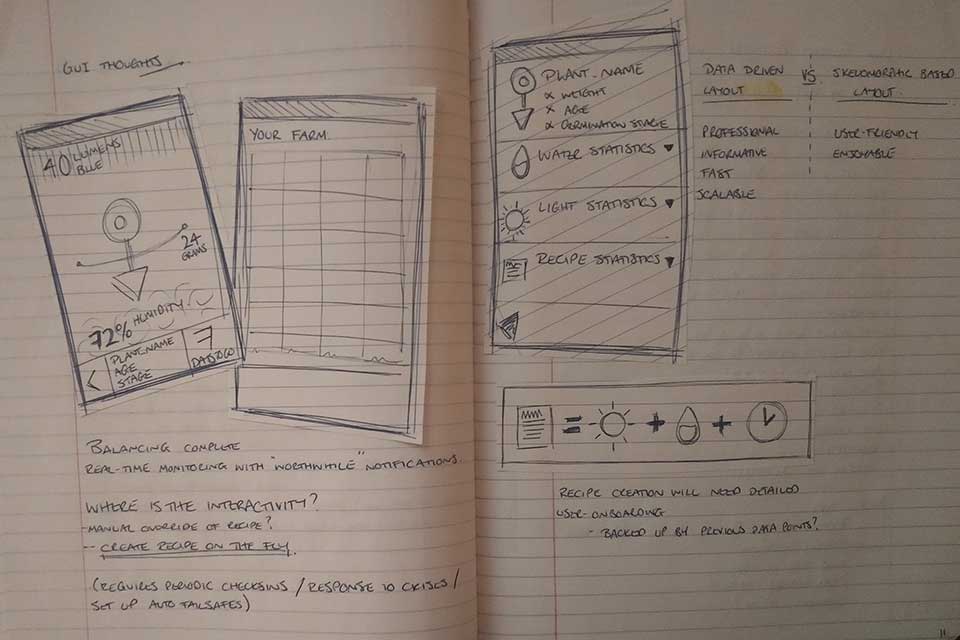 GUI THOUGHTS
40 LUMENS
BLUE
24
GRAMS
72% HUMIDITY
PLANT-NAME
AGE
STAGE
7
DAYS TO GO
YOUR FARM.
BALANCING COMPLETE
REAL-TIME MONITORING WITH "WORTHWHILE" NOTIFICATIONS.
WHERE IS THE INTERACTIVITY?
- MANUAL OVERRIDE OF RECIPE?
-- CREATE RECIPE ON THE FLY.
(REQUIRES PERIODIC CHECKSINS / RESPONSE TO CRISES /
SET UP AUTO FAILSAFES)
PLANT-NAME
× WEIGHT
× AGE
× GERMINATION STAGE
WATER STATISTICS ▼
LIGHT STATISTICS ▼
RECIPE STATISTICS ▼
DATA DRIVEN VS. SKEUOMORPHIC BASED
LAYOUT LAYOUT.
PROFESSIONAL USER-FRIENDLY
INFORMATIVE ENJOYABLE
FAST
SCALABLE
= + +
RECIPE CREATION WILL NEED DETAILED
USER-ONBOARDING
- BACKED UP BY PREVIOUS DATA POINTS?
11